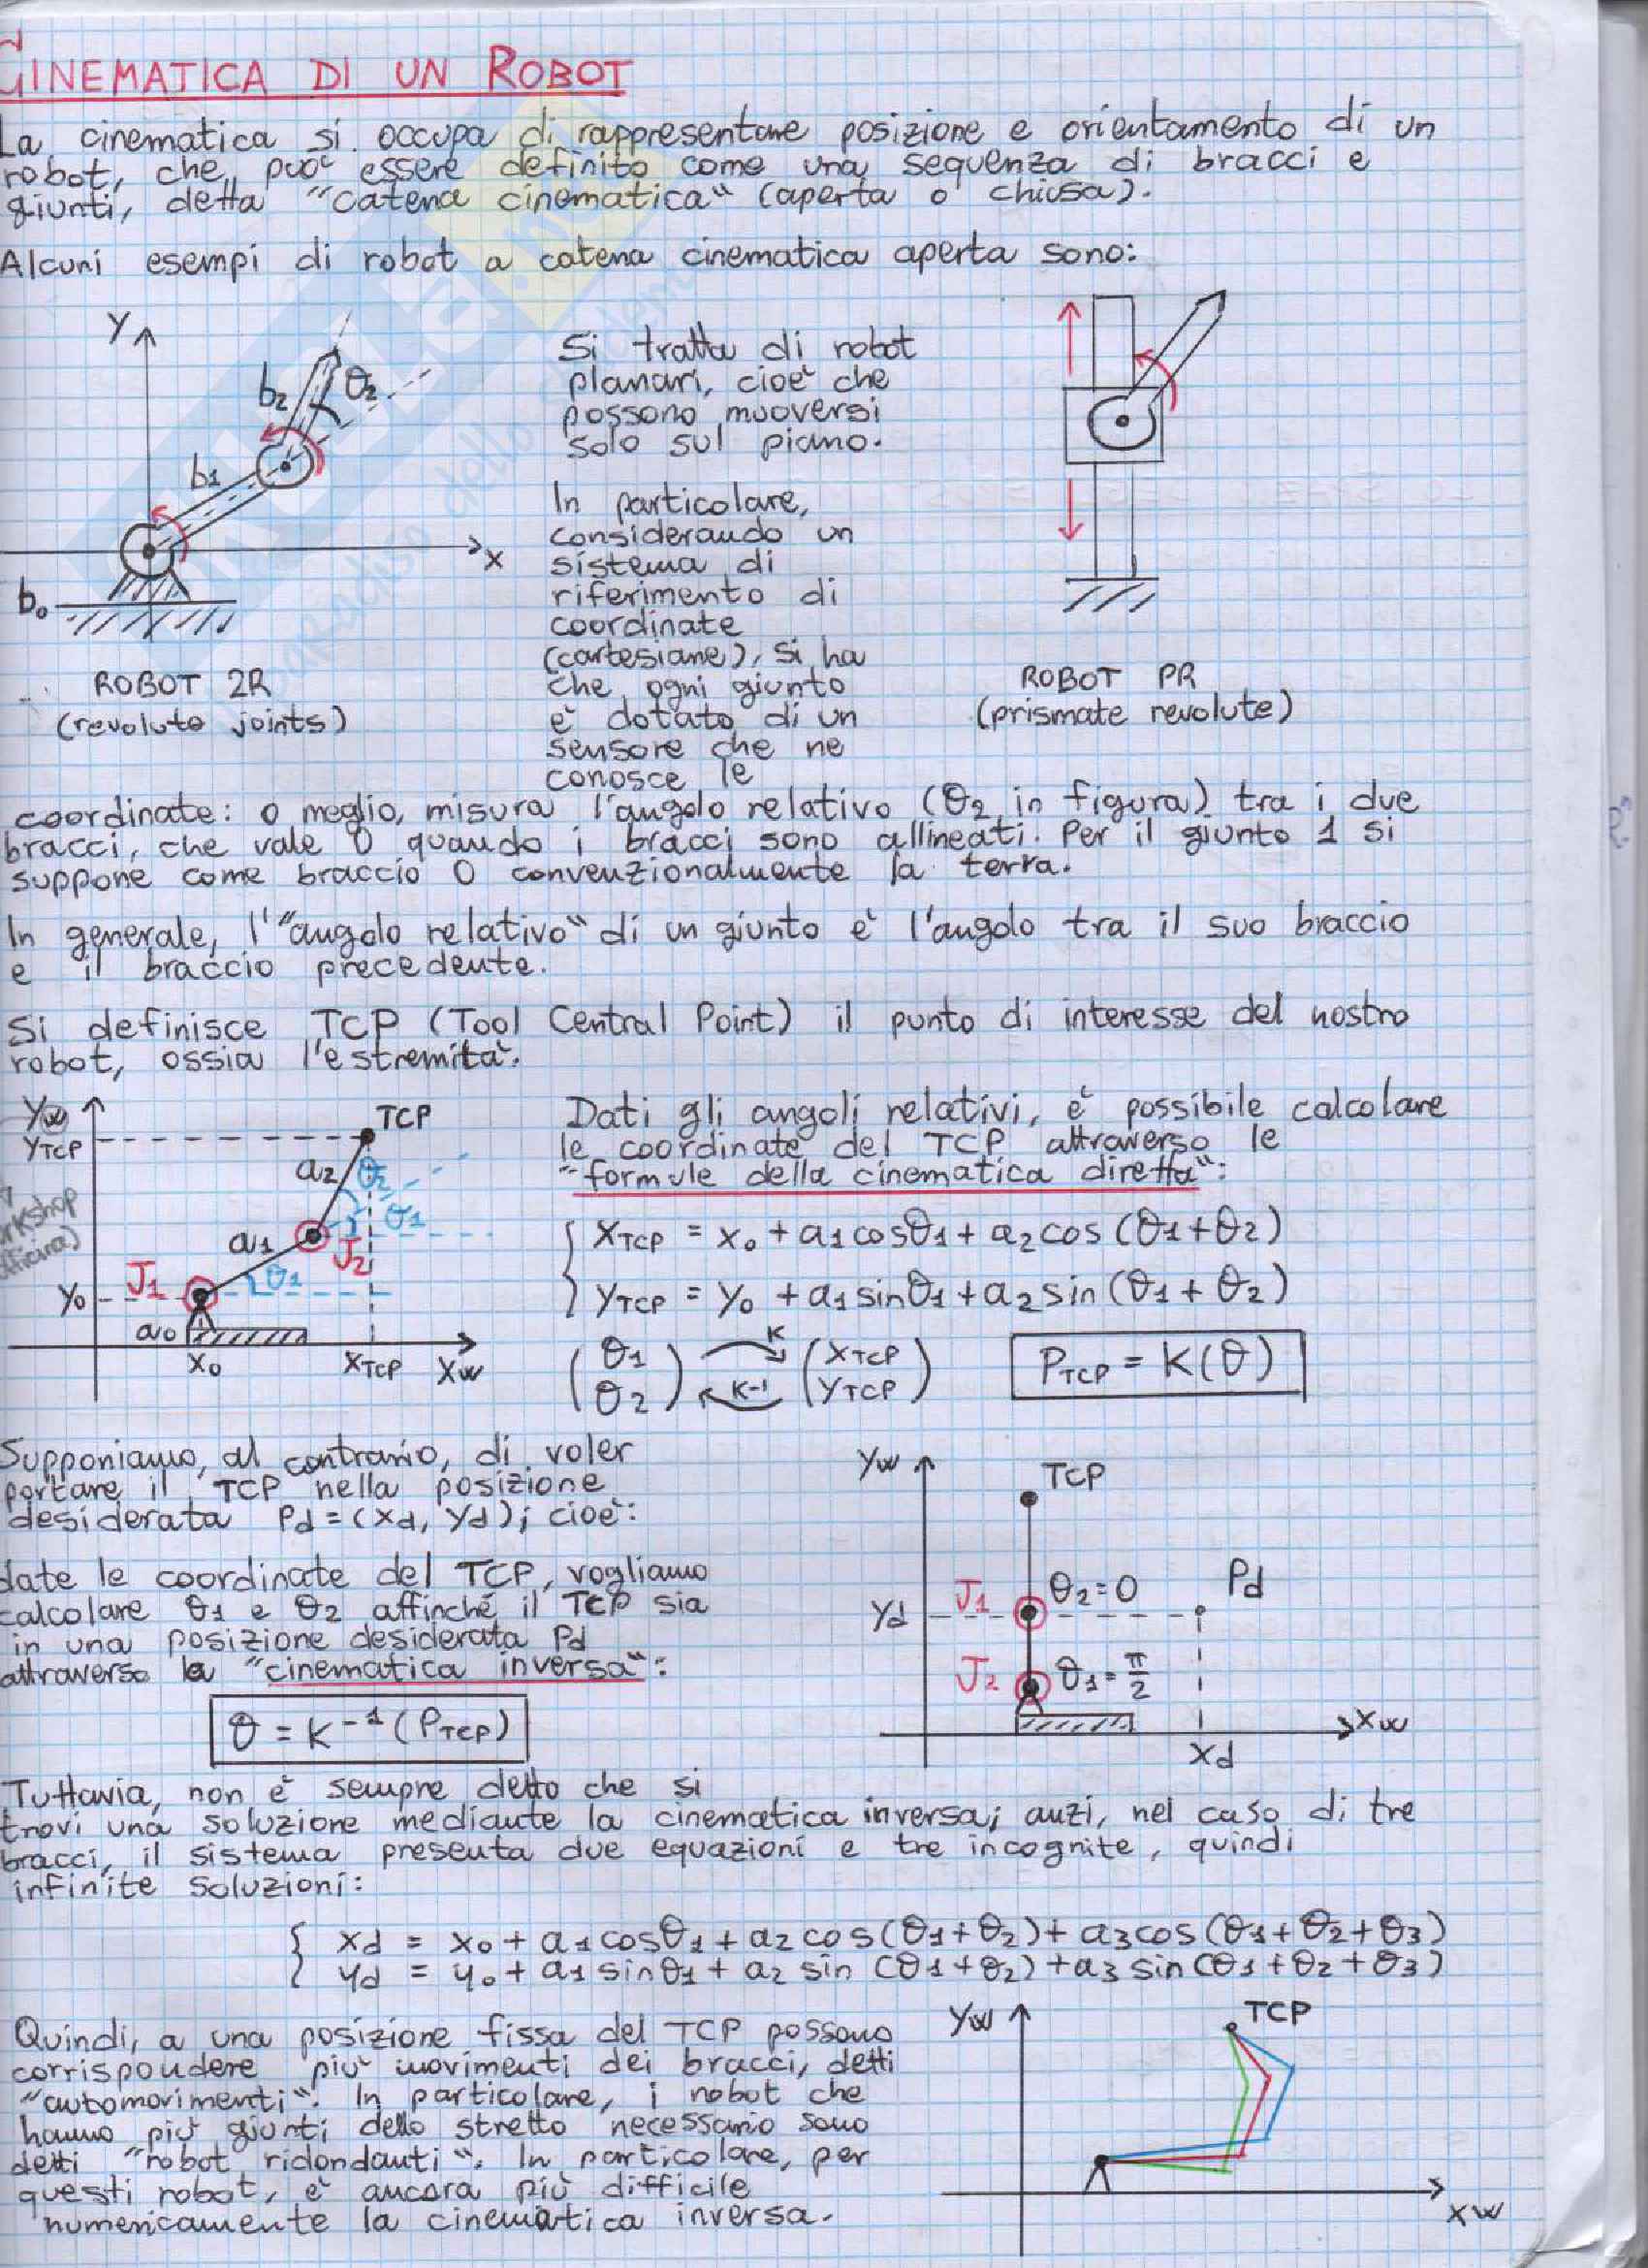 CINEMATICA DI UN ROBOT
La cinematica si occupa di rappresentare posizione e orientamento di un
robot, che può essere definito come una sequenza di bracci e
giunti, detta "catena cinematica" (aperta o chiusa).
Alcuni esempi di robot a catena cinematica aperta sono:
Y
b2
θ2
b1
x
b0
ROBOT 2R
(revoluto joints)
Si tratta di robot
planari, cioè che
possono muoversi
solo sul piano.
In particolare,
considerando un
sistema di
riferimento di
coordinate
(cartesiane), si ha
che ogni giunto
è dotato di un
sensore che ne
conosce le
ROBOT PR
(prismate revolute)
coordinate: o meglio, misura l'angolo relativo (θ2 in figura) tra i due
bracci, che vale 0 quando i bracci sono allineati. Per il giunto 1 si
suppone come braccio 0 convenzionalmente la terra.
In generale, l'"angolo relativo" di un giunto è l'angolo tra il suo braccio
e il braccio precedente.
Si definisce TCP (Tool Central Point) il punto di interesse del nostro
robot, ossia l'estremità.
Yw
YTCP
TCP
a2
θ2
θ1
a1
J2
J1
θ1
Y0
a0
X0
XTCP
Xw
Dati gli angoli relativi, è possibile calcolare
le coordinate del TCP attraverso le
"formule della cinematica diretta":
{ XTCP = x0 + a1cosθ1 + a2cos(θ1+θ2)
YTCP = y0 + a1sinθ1 + a2sin(θ1+θ2)
(θ1 θ2) K K-1 (XTCP YTCP)
PTCP = K(θ)
Supponiamo, al contrario, di voler
portare il TCP nella posizione
desiderata Pd = (xd, yd); cioè:
date le coordinate del TCP, vogliamo
calcolare θ1 e θ2 affinché il TCP sia
in una posizione desiderata Pd
attraverso la "cinematica inversa":
θ = K^-1 (PTCP)
Yw
TCP
J1
θ2=0
Pd
Yd
J2
θ1=π/2
Xw
Xd
Tuttavia, non è sempre detto che si
trovi una soluzione mediante la cinematica inversa; anzi, nel caso di tre
bracci, il sistema presenta due equazioni e tre incognite, quindi
infinite soluzioni:
{ xd = x0 + a1cosθ1 + a2cos(θ1+θ2) + a3cos(θ1+θ2+θ3)
yd = y0 + a1sinθ1 + a2 sin (θ1+θ2) + a3 sin(θ1+θ2+θ3)
Quindi, a una posizione fissa del TCP possono
corrispondere più movimenti dei bracci, detti
"automovimenti". In particolare, i robot che
hanno più giunti dello stretto necessario sono
detti "robot ridondanti". In particolare, per
questi robot, è ancora più difficile
numericamente la cinematica inversa.
Yw
TCP
XW